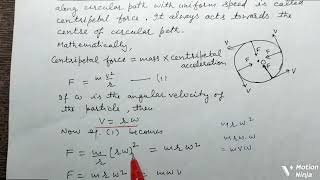 along circular path with uniform speed is called
centripetal force. It always acts towards the
centre of circular path.
Mathematically,
Centripetal force = mass × centripetal
acceleration
F = m v²/r — (1)
If ω is the angular velocity of
the particle, then
V = rω
Now eq. (1) becomes
F = m/r [rω]² = mrω²
F = mrω² = mωv
mrω²
mrω.ω
= mvω
V
V
V
V
F
F
F
F
Motion
Ninja